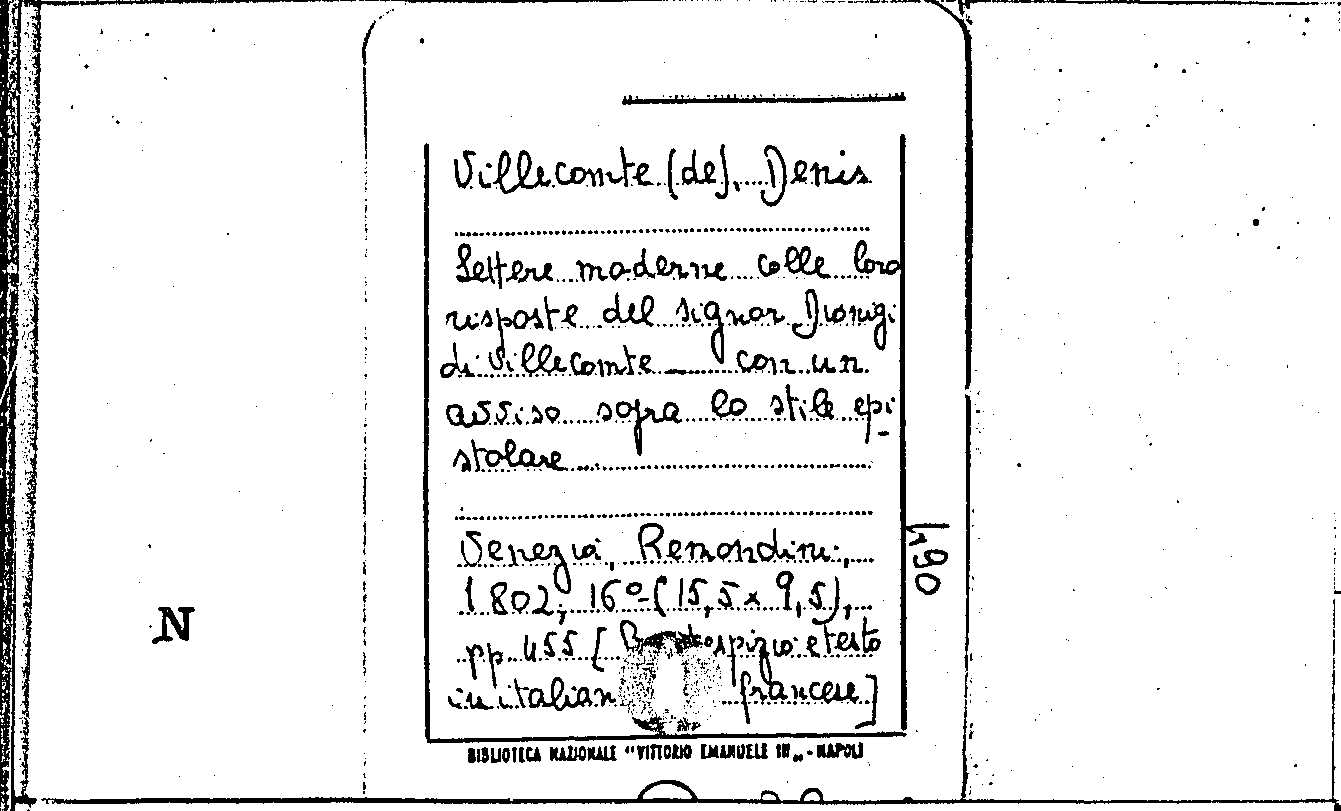 Villecomte (de), Denis
Lettere moderne colle loro
risposte del signor Dionigi
di Villecomte — con un
avviso sopra lo stile epi-
stolare
Venezia, Remondini,
1802, 16º (15,5 x 9,5),
pp. 455 [ e testo
in francese]
490
N
BIBLIOTECA NAZIONALE "VITTORIO EMANUELE III„ - NAPOLI